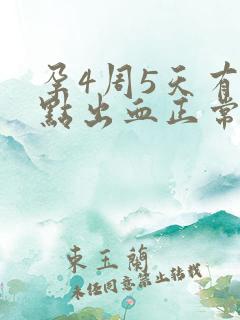 孕4周5天有
點出血正常
東玉蘭
未經同意禁止轉載